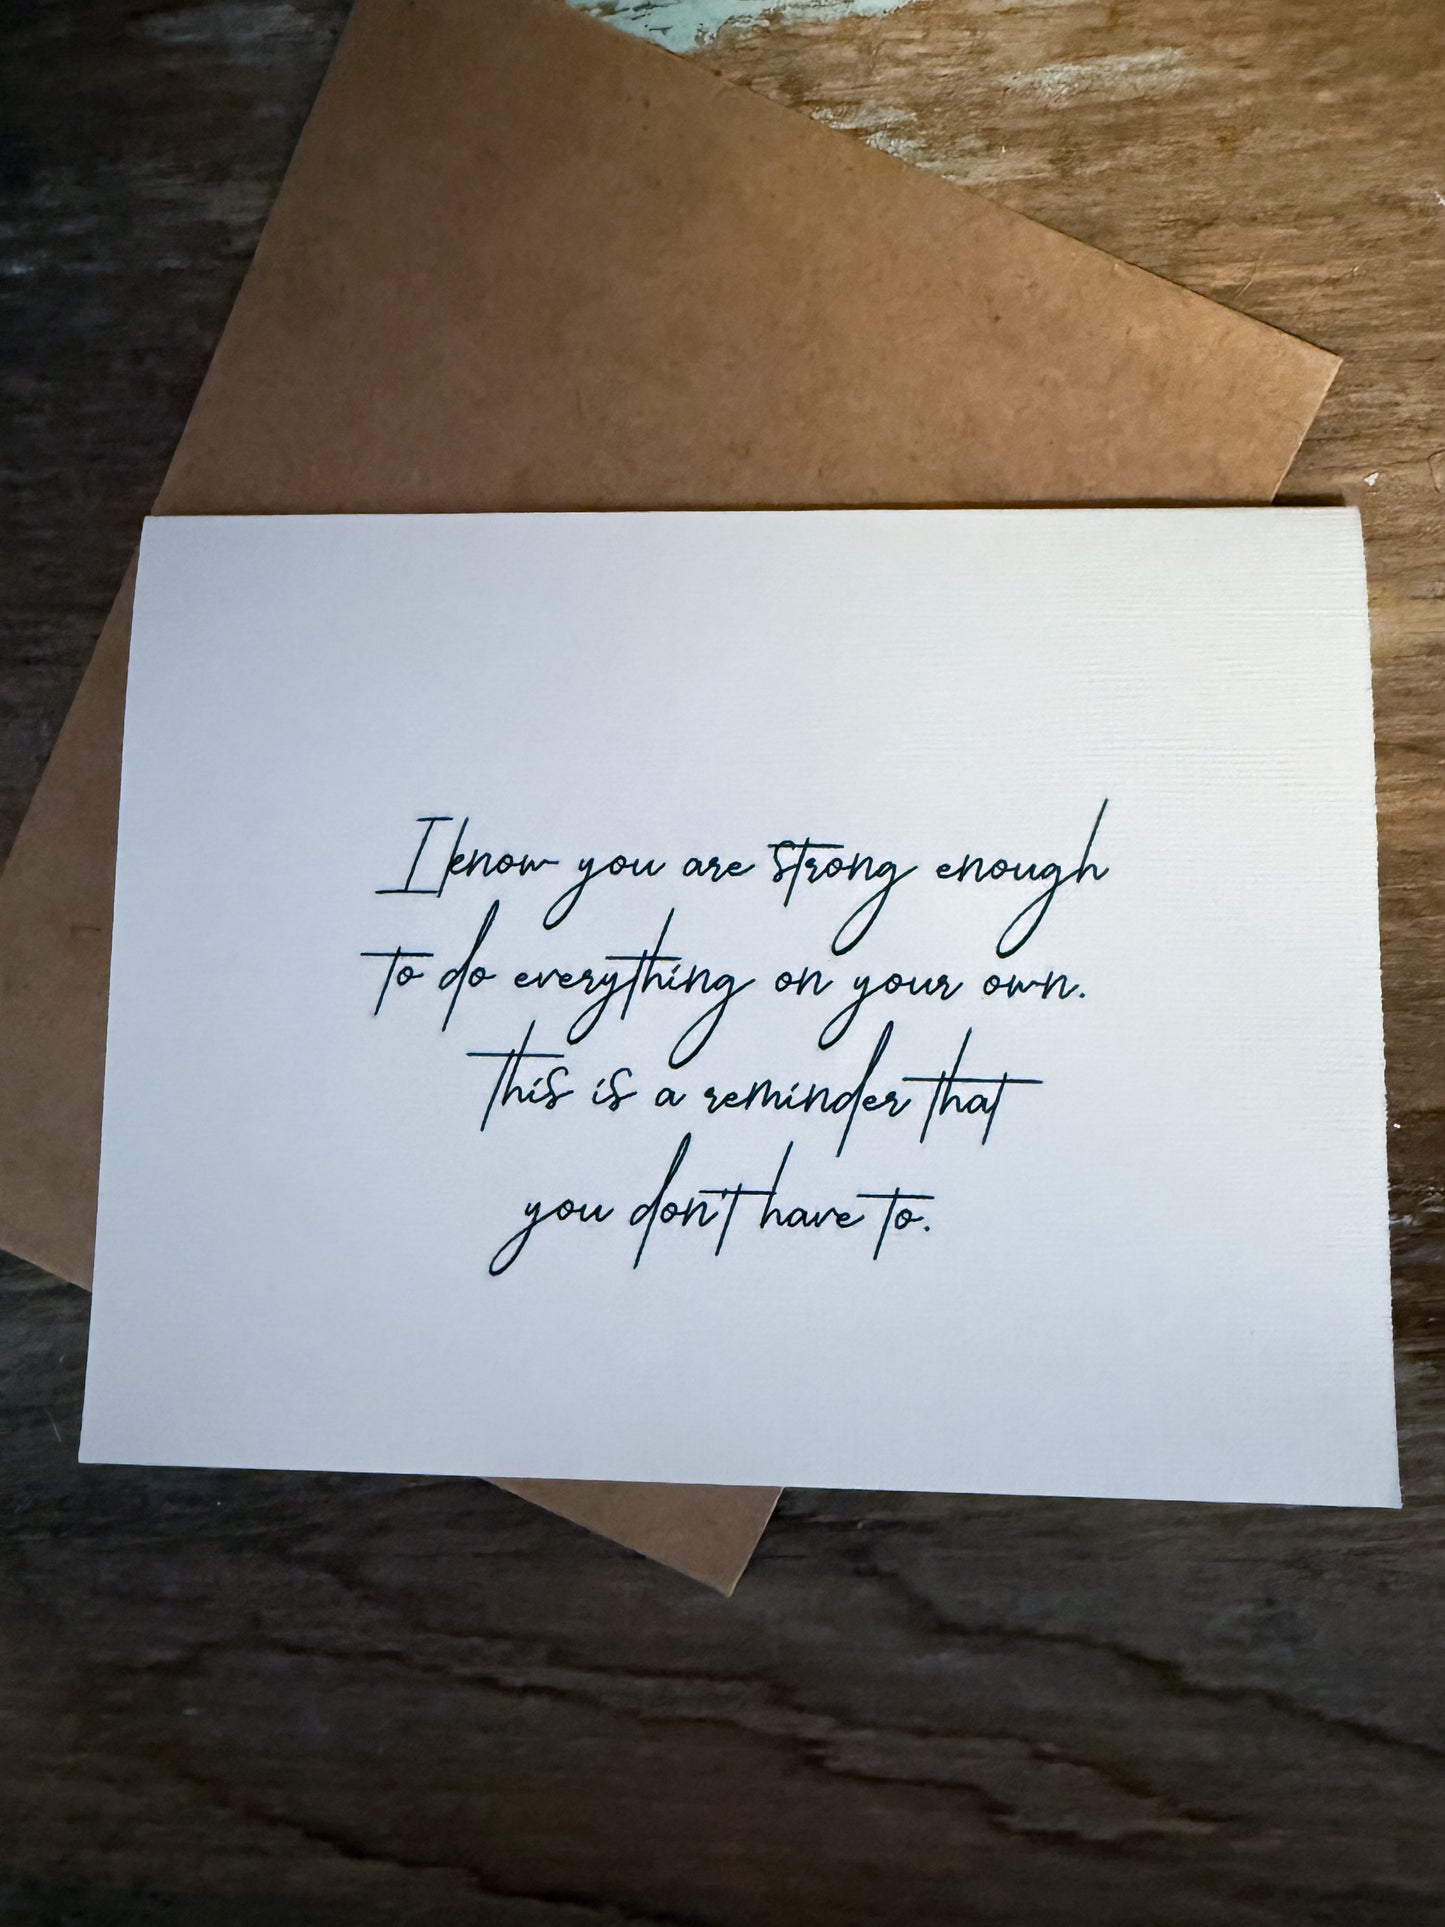 I know you are strong enough
to do everything on your own.
this is a reminder that
you don't have to.